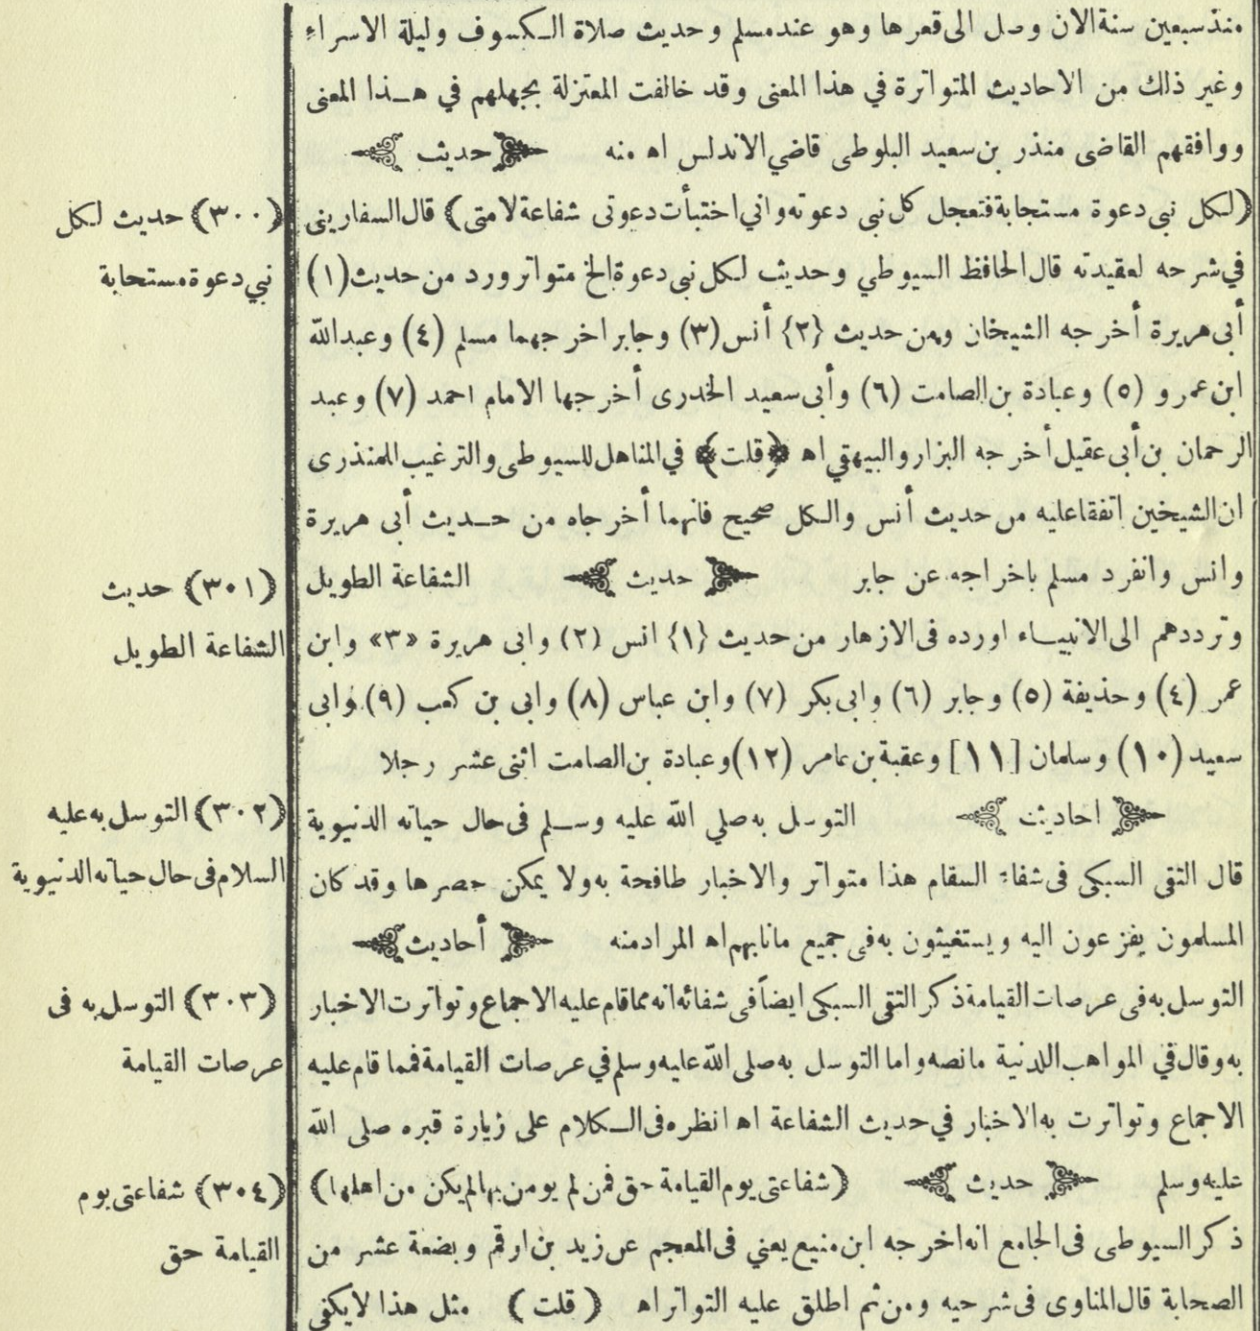 منذ سبعين سنة الان وصل الى قعرها وهو عند مسلم وحديث صلاة الكسوف وليلة الاسراء
وغير ذلك من الاحاديث المتواترة في هذا المعنى وقد خالفت المعتزلة بجهلهم في هذا المعنى
ووافقهم القاضى منذر بن سعيد البلوطى قاضي الاندلس اه منه ﴿حديث﴾
(لكل نبى دعوة مستجابة فتعجل كل نبى دعوته واني اختبأت دعوتى شفاعة لامتى) قال السفارينى
في شرحه لعقيدته قال الحافظ السيوطي وحديث لكل نبى دعوة الخ متواتر ورد من حديث (١)
أبى هريرة أخرجه الشيخان ومن حديث {٢} أنس (٣) وجابر اخرجهما مسلم (٤) وعبد الله
ابن عمرو (٥) وعبادة بن الصامت (٦) وأبى سعيد الخدرى أخرجها الامام احمد (٧) وعبد
الرحمان بن أبى عقيل أخرجه البزار والبيهقي اه ﴿قلت﴾ في المناهل للسيوطى والترغيب للمنذرى
ان الشيخين اتفقا عليه من حديث أنس والكل صحيح فانهما أخرجاه من حديث أبى هريرة
وانس وانفرد مسلم باخراجه عن جابر ﴿حديث﴾ الشفاعة الطويل
وترددهم الى الانبياء اورده فى الازهار من حديث {١} انس (٢) وابى هريرة «٣» وابن
عمر (٤) وحذيفة (٥) وجابر (٦) وابى بكر (٧) وابن عباس (٨) وابى بن كعب (٩) وابى
سعيد (١٠) وسلمان [١١] وعقبة بن عامر (١٢) وعبادة بن الصامت اثنى عشر رجلا
﴿احاديث﴾ التوسل به صلي الله عليه وسلم فى حال حياته الدنيوية
قال التقى السبكى فى شفاء السقام هذا متواتر والاخبار طافحة به ولا يمكن حصرها وقد كان
المسلمون يفزعون اليه ويستغيثون به فى جميع ما نابهم اه المراد منه ﴿أحاديث﴾
التوسل به فى عرصات القيامة ذكر التقى السبكى ايضاً فى شفائه انه مما قام عليه الاجماع وتواترت الاخبار
به وقال في المواهب اللدنية ما نصه واما التوسل به صلى الله عليه وسلم في عرصات القيامة فمما قام عليه
الاجماع وتواترت به الاخبار في حديث الشفاعة اه انظره فى الكلام على زيارة قبره صلى الله
عليه وسلم ﴿حديث﴾ (شفاعتى يوم القيامة حق فمن لم يومن بها لم يكن من اهلها)
ذكر السيوطى فى الجامع انه اخرجه ابن منيع يعني فى المعجم عن زيد بن ارقم وبضعة عشر من
الصحابة قال المناوى فى شرحيه ومن ثم اطلق عليه التواتر اه (قلت) مثل هذا لا يكفي
(٣٠٠) حديث لكل
نبي دعوة مستحابة
(٣٠١) حديث
الشفاعة الطويل
(٣٠٢) التوسل به عليه
السلام فى حال حياته الدنيوية
(٣٠٣) التوسل به فى
عرصات القيامة
(٣٠٤) شفاعتى يوم
القيامة حق